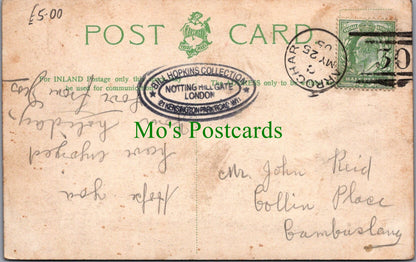 £5-00
POST CARD
For INLAND Postage only this
be used for communication
The ADDRESS only to be
ARROCHAR
MY 25
05
BILL HOPKINS COLLECTION
NOTTING HILL GATE
LONDON
KENSINGTON PARK ROAD W11
Mo's Postcards
Hope
you
have enjoyed
holiday
love from
Mr John Reid
Collin Place
Cambuslang